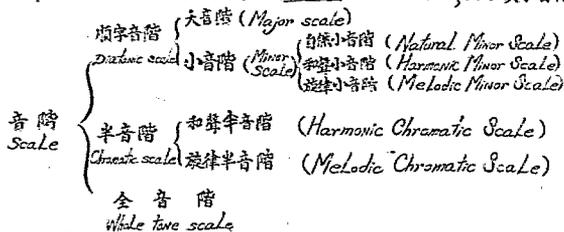 順字音階 大音階 (Major scale)
Diatonic scale 小音階 (Minor Scale) 自然小音階 (Natural Minor Scale)
和聲小音階 (Harmonic Minor Scale)
旋律小音階 (Melodic Minor Scale)
音階 Scale
半音階 Chromatic scale 和聲半音階 (Harmonic Chromatic Scale)
旋律半音階 (Melodic Chromatic Scale)
全音階
Whole tone scale